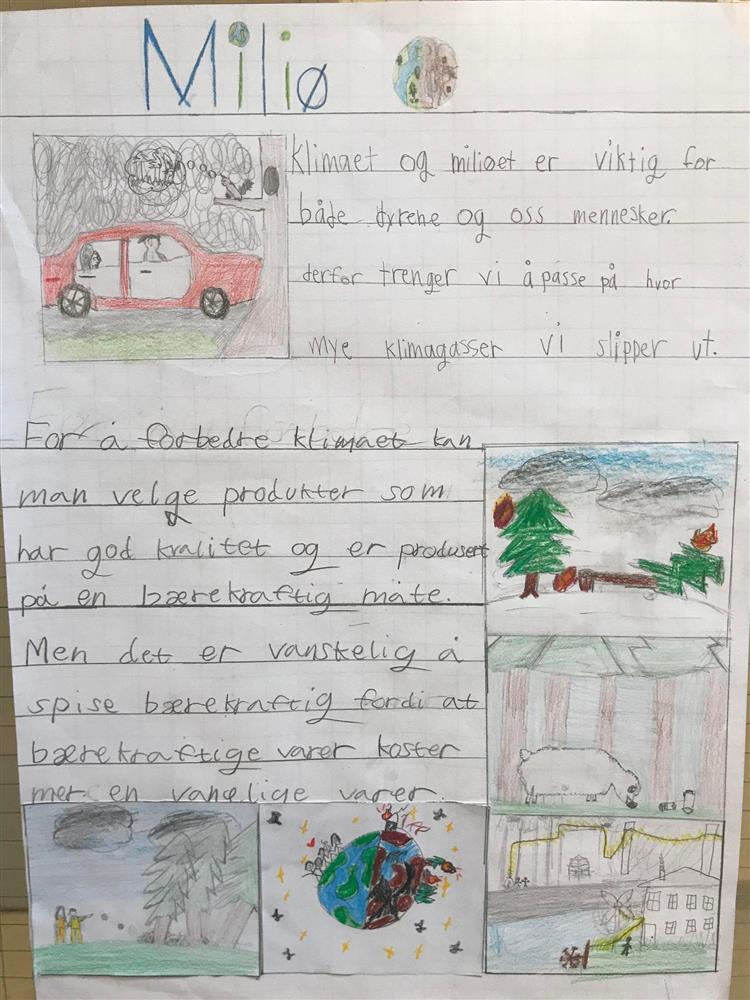 Miliø
Klimaet og miliøet er viktig for
både dyrene og oss mennesker.
derfor trenger vi å passe på hvor
mye klimagasser vi slipper ut.
For å forbedre klimaet kan
man velge produkter som
har god kvalitet og er produsert
på en bærekraftig måte.
Men det er vanskelig å
spise bærekraftig fordi at
bærekraftige varer koster
mer en vanelige varer.